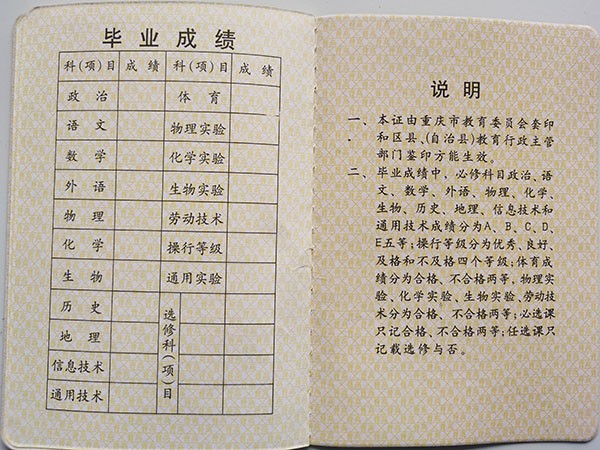 毕业成绩
科(项)目 成绩 科(项)目 成绩
政治 体育
语文 物理实验
数学 化学实验
外语 生物实验
物理 劳动技术
化学 操行等级
生物 通用实验
历史
地理
信息技术
通用技术
选修科(项)目
说明
一、本证由重庆市教育委员会套印
和区县、(自治县)教育行政主管
部门鉴印方能生效。
二、毕业成绩中,必修科目政治、语
文、数学、外语、物理、化学、
生物、历史、地理、信息技术和
通用技术成绩分为A、B、C、D、
E五等;操行等级分为优秀、良好、
及格和不及格四个等级;体育成
绩分为合格、不合格两等,物理实
验、化学实验、生物实验、劳动技
术分为合格、不合格两等;必选课
只记合格、不合格两等;任选课只
记载选修与否。